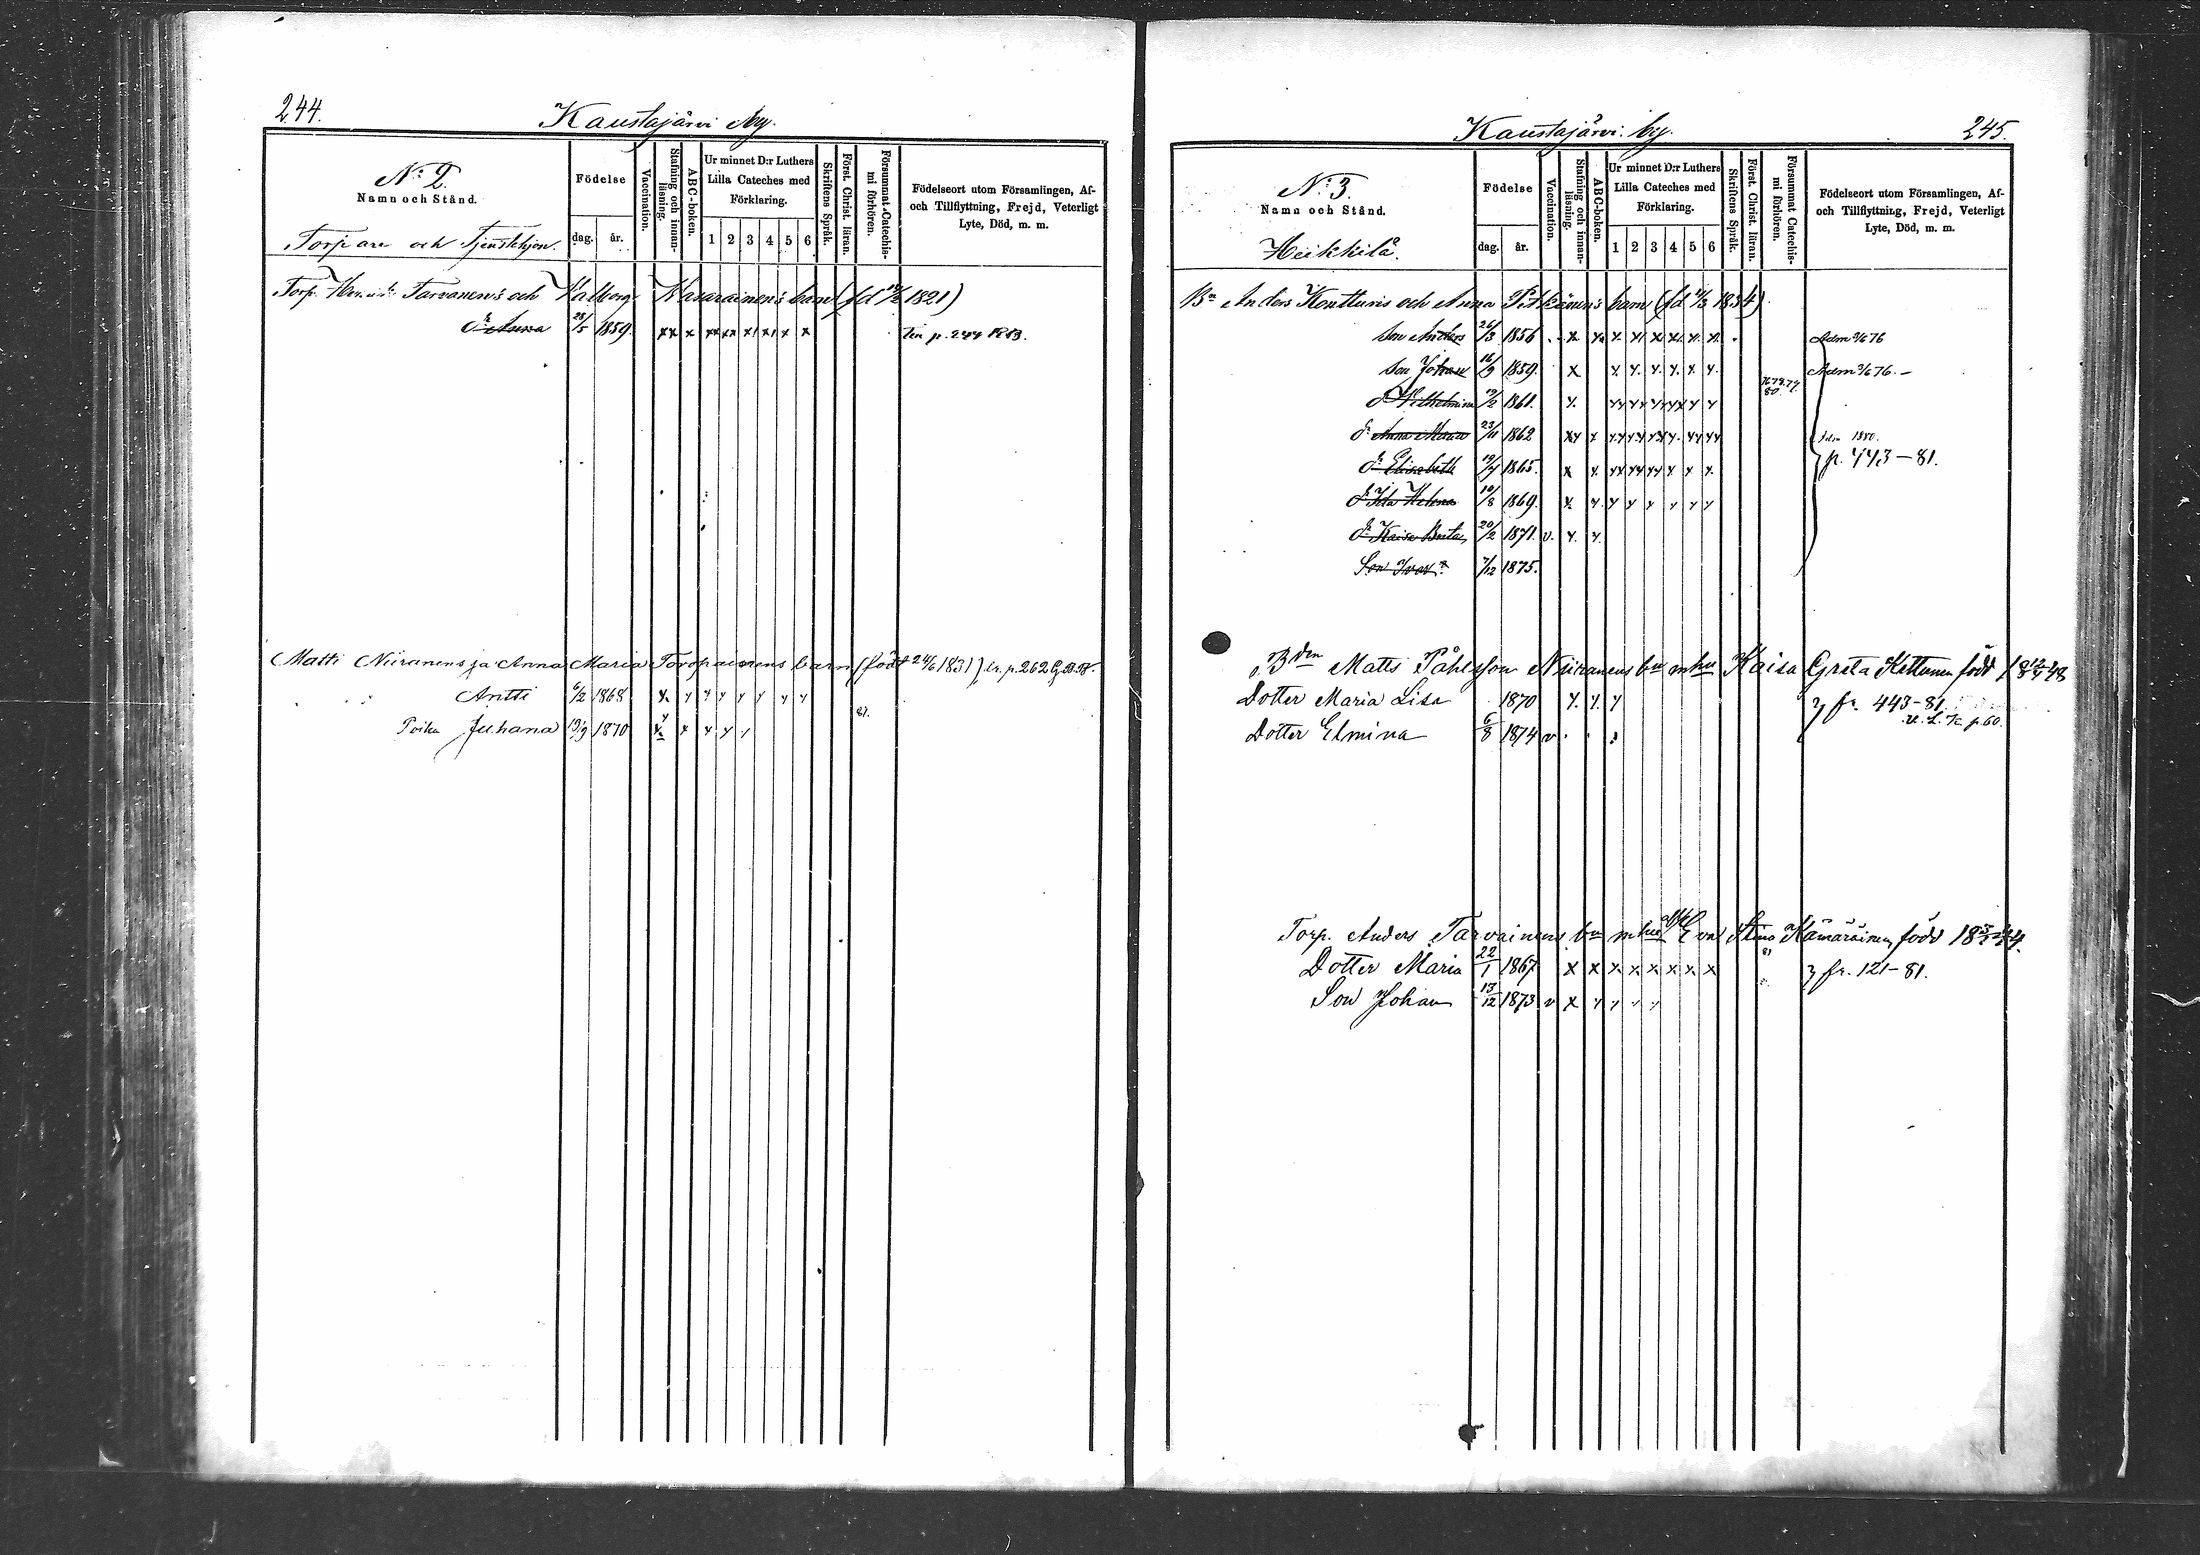 244.
Kaustajärvi by.
N:o 2.
Namn och Stånd.
Torpare och Tjenstehjon.
Födelse
dag. år.
Vaccination.
Stafning och innanläsning.
ABC-boken.
Ur minnet D:r Luthers Lilla Cateches med Förklaring.
1 2 3 4 5 6
Skriftens Språk.
Först. Christ. läran.
Försummat Catechismi förhören.
Födelseort utom Församlingen, Af- och Tillflyttning, Frejd, Veterligt Lyte, Död, m. m.
Torp. Tarvanens och Walborg Kasarainens barn (fd 1821)
dr Anna 28/5 1859. xx x xx xx x x x x p. 244
Matti Niiranens ja Anna Maria Toropainens barn (född 24/6 1831) p. 262
Antti 6/2 1868 x x x x x x x x
81.
Poika Juhana 19/9 1870 x x x x x
245.
Kaustajärvi by.
N:o 3.
Namn och Stånd.
Heikkilä.
Födelse
dag. år.
Vaccination.
Stafning och innanläsning.
ABC-boken.
Ur minnet D:r Luthers Lilla Cateches med Förklaring.
1 2 3 4 5 6
Skriftens Språk.
Först. Christ. läran.
Försummat Catechismi förhören.
Födelseort utom Församlingen, Af- och Tillflyttning, Frejd, Veterligt Lyte, Död, m. m.
Bn Anders Kontturis och Anna Pitkänens barn (fd 1834)
Son Anders 26/3 1856 x x x x x x x x Adm 76
Son Johan 16/9 1859. x x x x x x x Adm 76.
d:r Wilhelmina 19/2 1861. 80
d:r Anna Maria 23/11 1862 1880.
d:r Elisabeth 19/4 1865. p. 443-81.
d:r Ida Helena 10/8 1869.
d:r Kaisa 20/2 1871. v.
Son Ivar 7/12 1875.
Bden Matts Påhlsson Niiranens bn mhu Kaisa Greta Kettunen född 1848
Dotter Maria Lisa 1870 x x x fr. 443-81.
p. 60.
Dotter Elmina 6/8 1874 v
Torp. Anders Tarvainens bn mhu Eva Stina Kämäräinen född 1844.
81
Dotter Maria 22/1 1867 x x x x x x x x fr. 121-81.
Son Johan 13/12 1873 v x x x x x